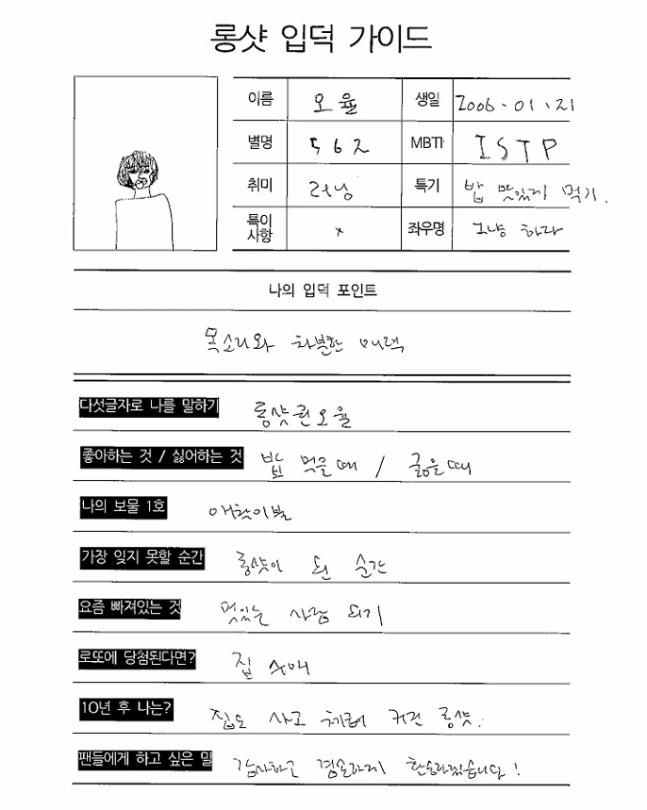 롱샷 입덕 가이드
이름 오율 생일 2006.01.21
별명 562 MBTI ISTP
취미 러닝 특기 밥 맛있게 먹기.
특이사항 x 좌우명 그냥 하자
나의 입덕 포인트
목소리와 차분한 매력
다섯글자로 나를 말하기 롱샷퀸오율
좋아하는 것 / 싫어하는 것 밥 먹을때 / 굶을때
나의 보물 1호 애착이불
가장 잊지 못할 순간 롱샷이 된 순간
요즘 빠져있는 것 멋있는 사람 되기
로또에 당첨된다면? 집 구매
10년 후 나는? 집도 사고 커진 롱샷.
팬들에게 하고 싶은 말 감사하고 겸손하게 하겠습니다!